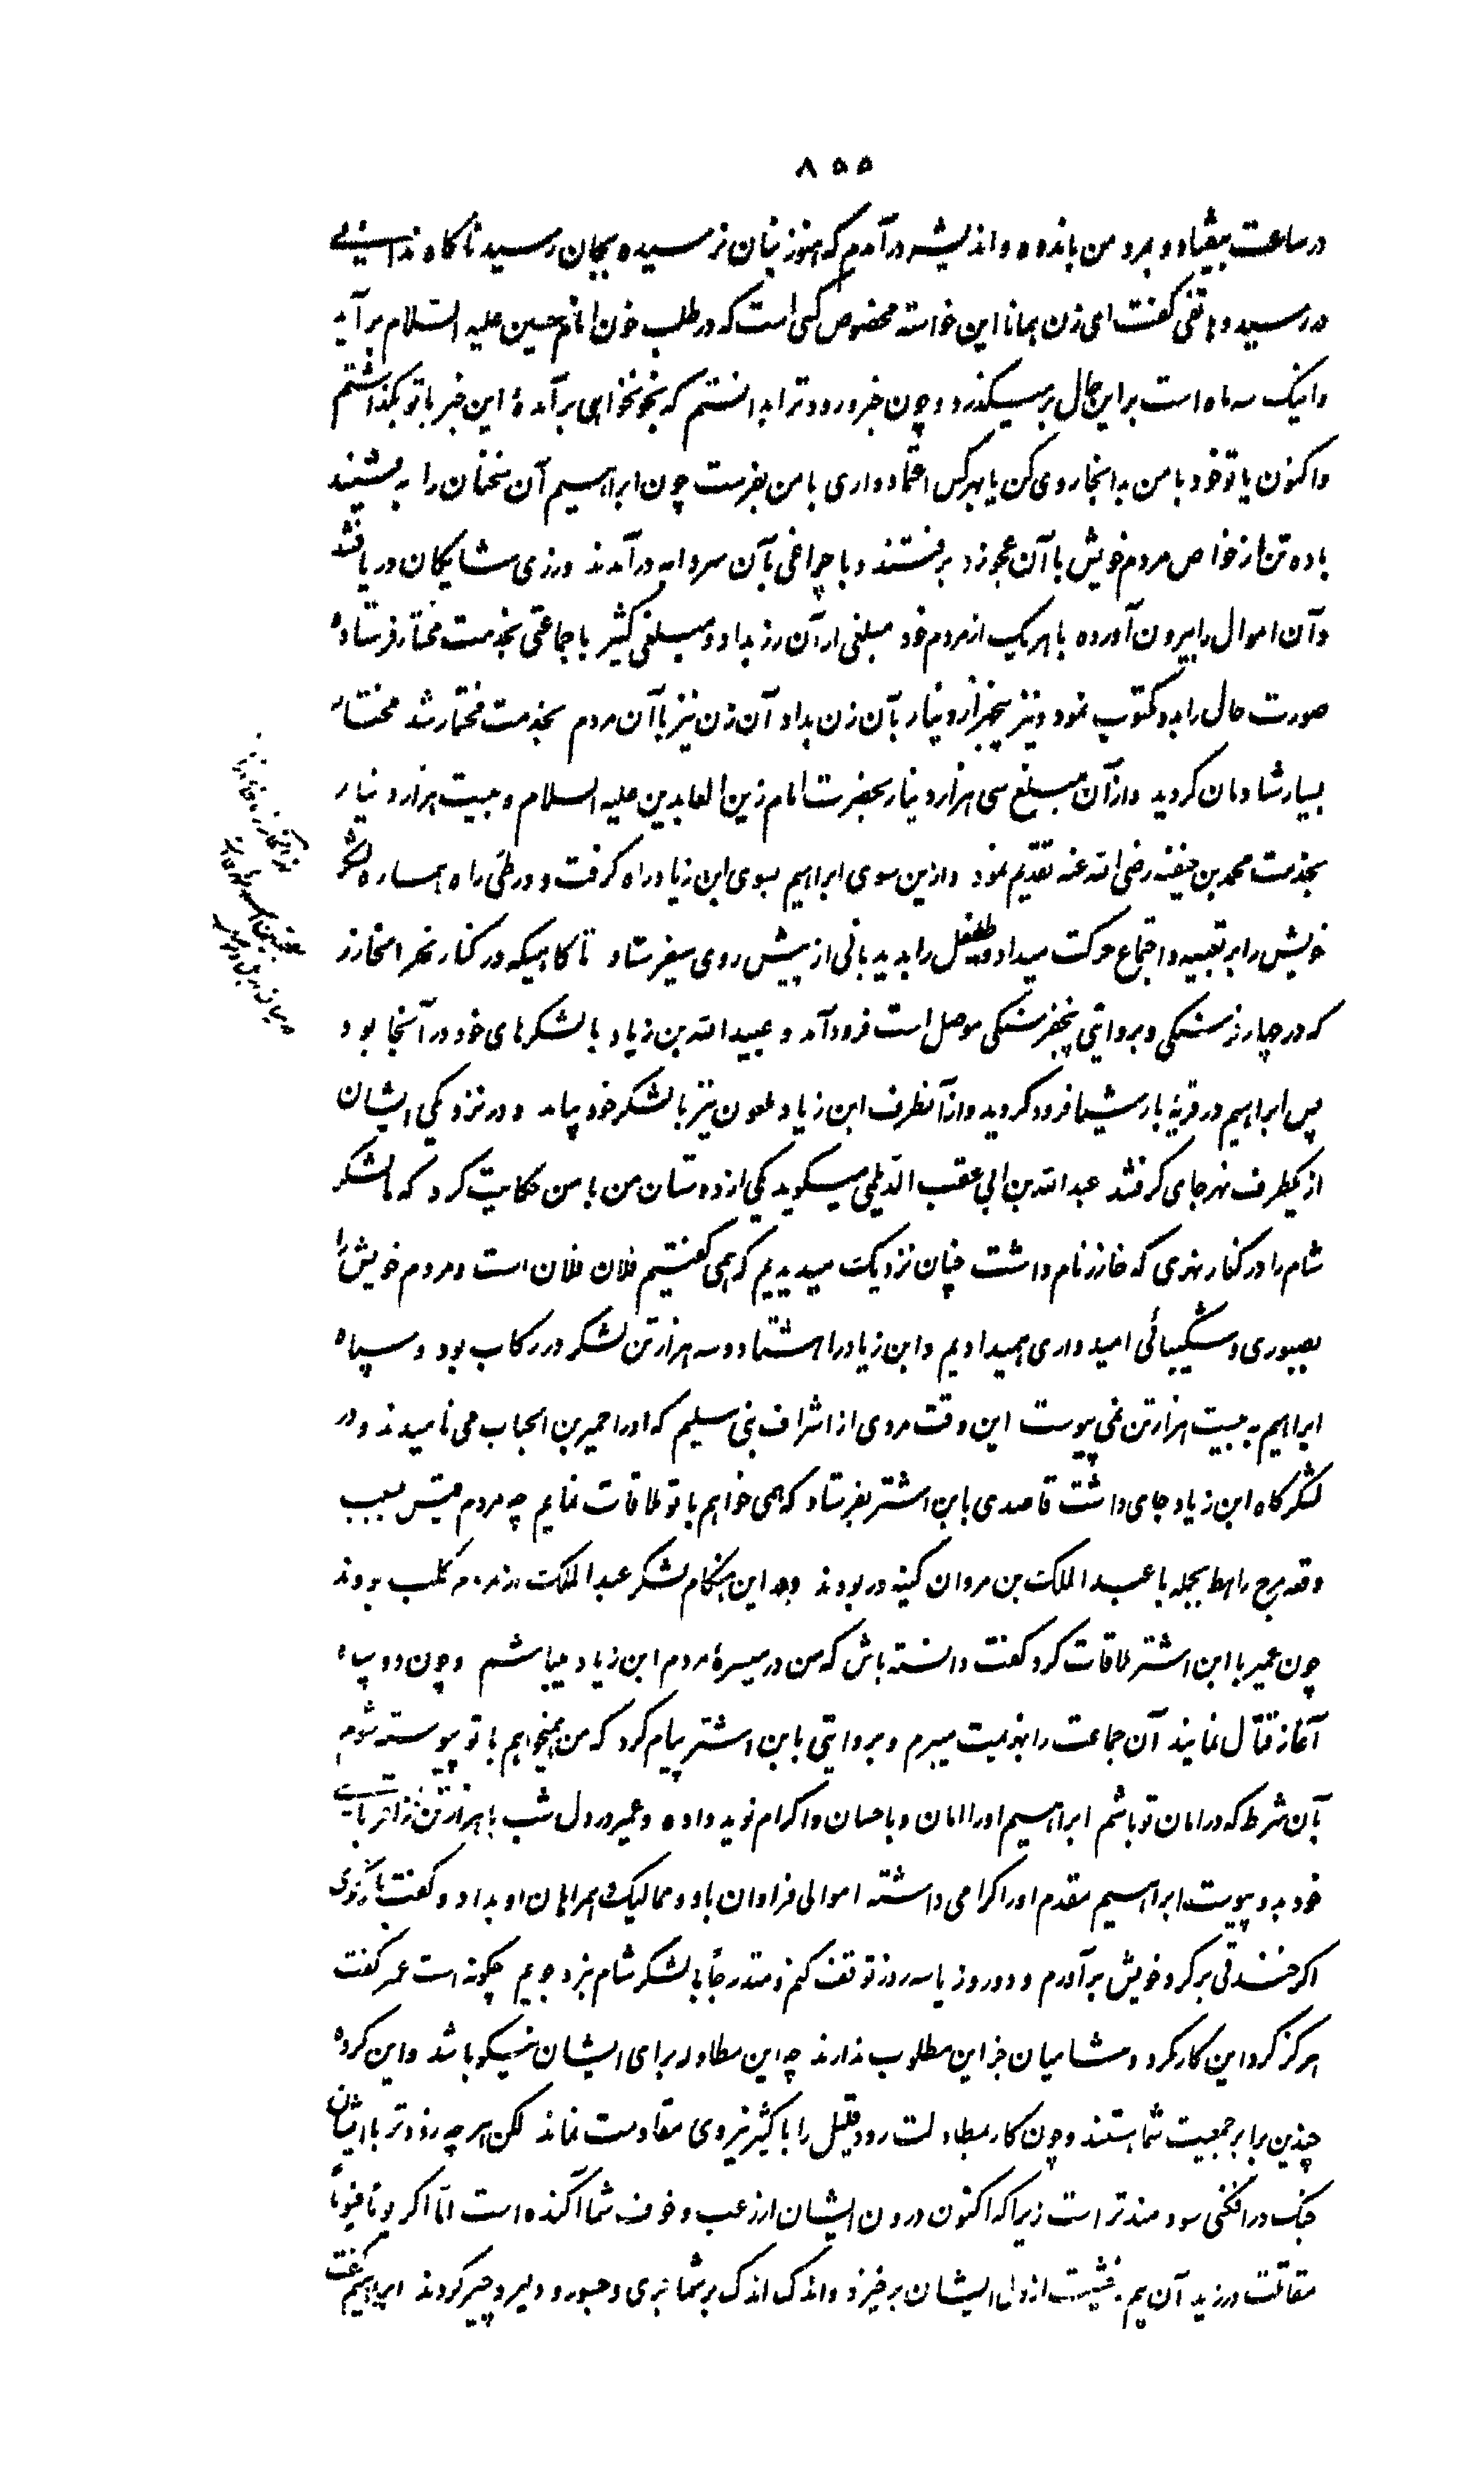 ۸۵۵
در ساعت بیفتاد و بمرد من باندوه و اندیشه در آمدم که هنوز بنان نرسیده بجان رسید ناگاه ندائی
در رسید و هاتفی گفت ای زن همانا این خواسته مخصوص کسی است که در طلب خون امام حسین علیه السلام بر آید
و اینک سه ماه است بر این حال بر میگذرد و چون خبر ورود ترا بدانستم که بخونخواهی برآمدهٔ این خبر با تو بگذاشتم
و اکنون یا تو خود با من بدانجا روی کن یا بهر کس اعتماد داری با من بفرست چون ابراهیم آن سخنان را بشنید
با ده تن از خواص مردم خویش با آن عجوزه برفتند و با چراغی بآن سردابه در آمدند و رزی شایگان دریافتند
و آن اموال را بیرون آورده با هر یک از مردم خود مبلغی از آن زر بداد و مبلغی کثیر با جماعتی بخدمت مختار فرستاده
صورت حال را بدو مکتوب نمود و نیز پنجهزار دینار بآن زن بداد آن زن نیز با آن مردم بخدمت مختار شد مختار
بسیار شادمان گردید و از آن مبلغ سی هزار دینار بحضرت امام زین العابدین علیه السلام و بیست هزار دینار
بخدمت محمد بن حنفیه رضی الله عنه تقدیم نمود و ازین سوی ابراهیم بسوی ابن زیاد راه گرفت و در طی راه همواره لشکر
خویش را بر تعبیه و اجتماع حرکت میداد و طفیل را بدیدبانی از پیش روی میفرستاد تا گاهیکه در کنار نهر الخازر
که در چهار فرسنگی و بروایتی پنجفرسنگی موصل است فرود آمد و عبیدالله بن زیاد با لشکرهای خود در آنجا بود
پس ابراهیم در قریهٔ باربشیا فرود گردید و از آنطرف ابن زیاد ملعون نیز با لشکر خود بیامد و در نزدیکی ایشان
از یکطرف نهر جای گرفتند عبدالله بن ابی عقب الدیلمی میگوید یکی از دوستان من با من حکایت کرد که ما لشکر
شام را در کنار نهری که خازر نام داشت چنان نزدیک میدیدیم که همی گفتیم فلان فلان است و مردم خویش را
بصبوری و شکیبائی امیدواری همیدادیم و ابن زیاد را هشتاد و سه هزار تن لشکر در رکاب بود و سپاه
ابراهیم به بیست هزار تن نمی پیوست این وقت مردی از اشراف بنی سلیم که او را عمیر بن الحباب می نامیدند و در
لشکرگاه ابن زیاد جای داشت قاصدی بابن اشتر بفرستاد که همی خواهم با تو ملاقات نمایم چه مردم قیس بسبب
وقعه مرج راهط بجمله با عبدالملک بن مروان کینه ور بودند و در این هنگام لشکر عبدالملک از مردم کلب بودند
چون عمیر با ابن اشتر ملاقات کرد گفت دانسته باش که من در میسرهٔ مردم ابن زیاد میباشم و چون دو سپاه
آغاز قتال نمایند آن جماعت را بهزیمت میبرم و بروایتی بابن اشتر پیام کرد که من میخواهم با تو پیوسته شوم
بآن شرط که در امان تو باشم ابراهیم او را امان و باحسان و اکرام نوید داده و عمیر در دل شب با هزار تن از اقربای
خود بدو پیوست ابراهیم مقدم او را گرامی داشته اموالی فراوان باو و ممالیک و همراهان او بداد و گفت با رأی
اگر خندقی بر گرد خویش برآورم و دو روز یا سه روز توقف کنم و متدرجاً با لشکر شام نبرد جویم چگونه است عمیر گفت
هرگز گرد این کار مگرد و شامیان جز این مطلوب ندارند چه این مطاوله برای ایشان نیکو باشد و این گروه
چندین برابر جمعیت شما هستند و چون کار بمطاولت رود قلیل را با کثیر نیروی مقاومت نماند لکن هر چه زودتر با ایشان
جنگ در افکنی سودمندتر است زیرا که اکنون درون ایشان از رعب و خوف شما آکنده است اما اگر یوماً فیوماً
مقاتلت ورزید آن بیم و خشیت از دل ایشان برخیزد و اندک اندک بر شما جری و جسور و دلیر و چیر گردند ابراهیم گفت